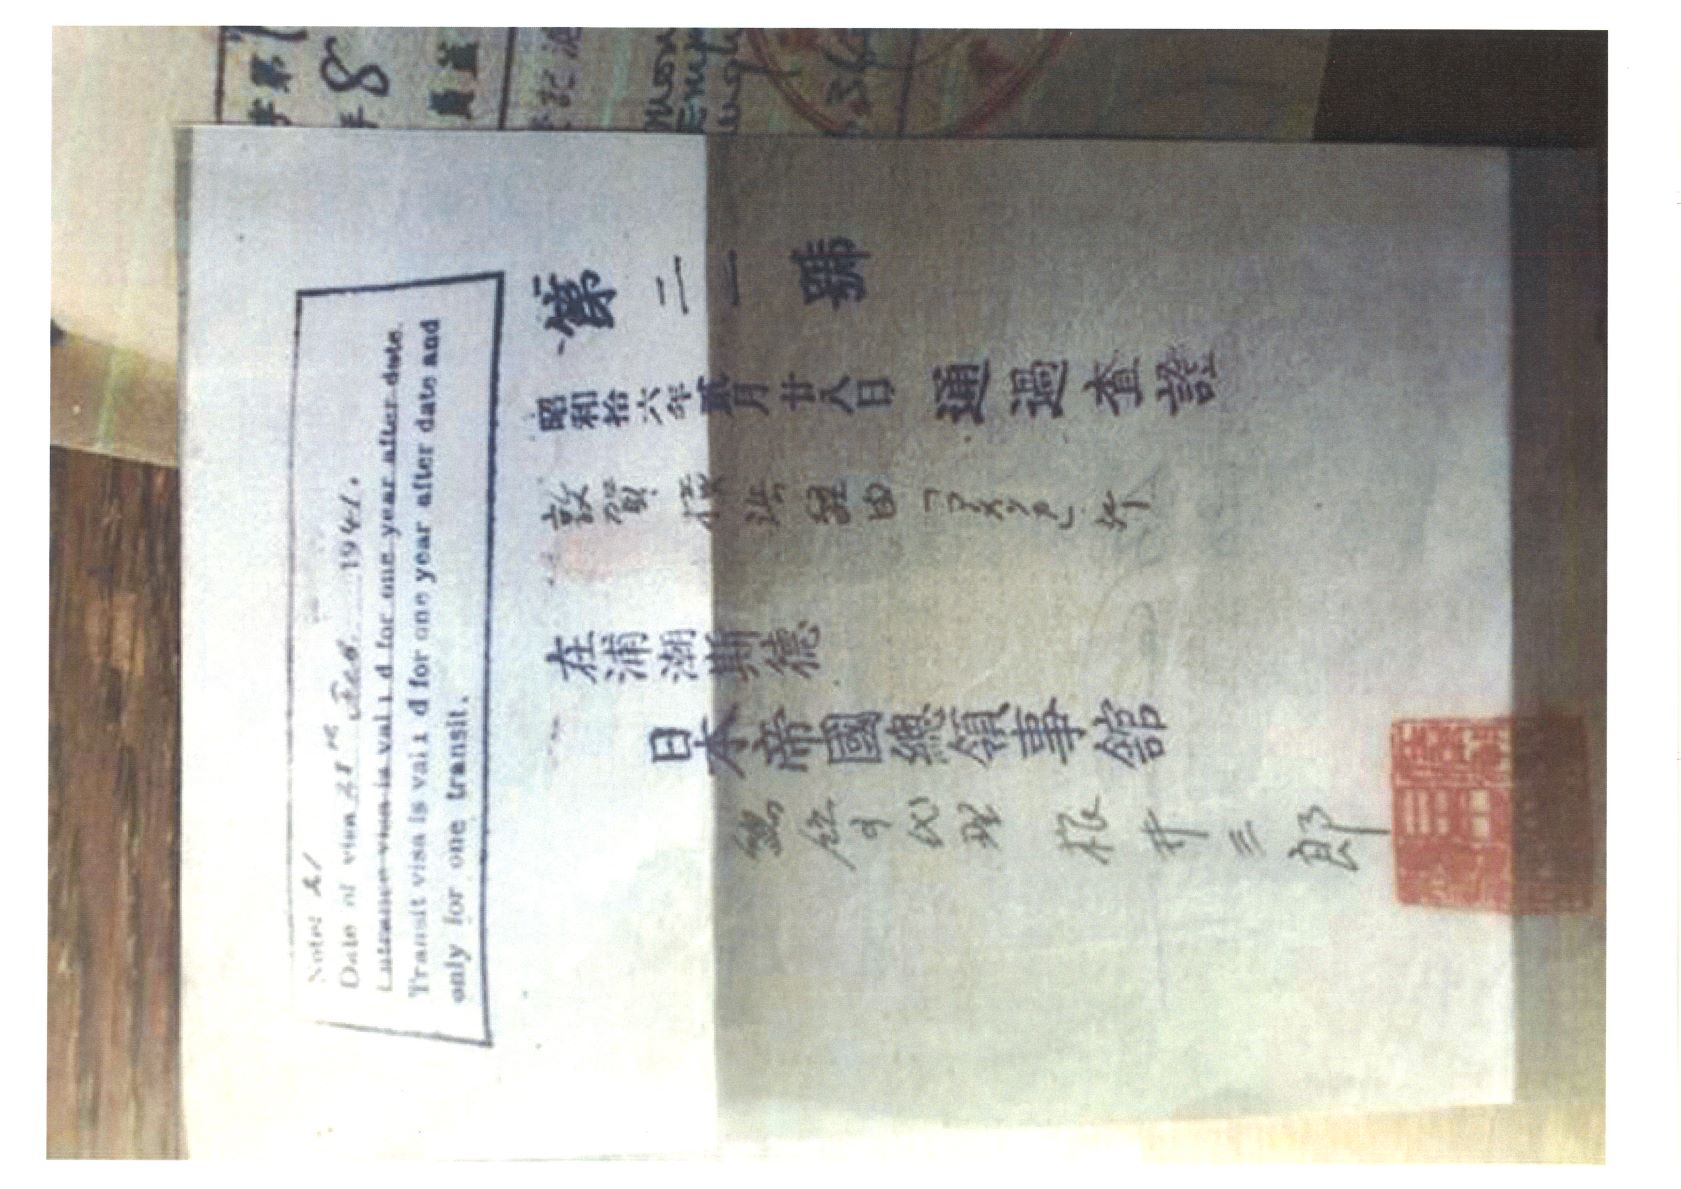 Date of visa 28 Feb. 1941.
Entrance visa is valid for one year after date.
Transit visa is vaild for one year after date and
only for one transit.
第二一號
昭和拾六年貳月廿八日 通過査證
敦賀横浜経由 行
在浦潮斯德
日本帝國總領事館
總領事代理 根井三郎